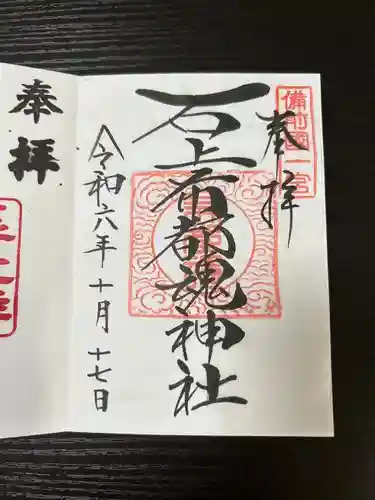 備前國一宮
奉拝
石上布都魂神社
令和六年十月十七日
奉拝